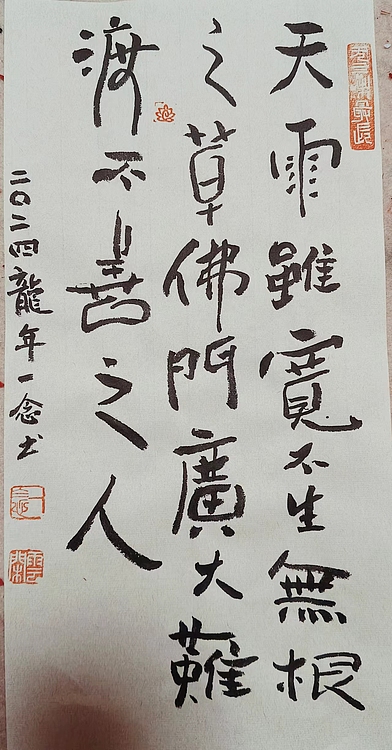 天雨雖寬不生無根
之草佛門廣大難
渡不善之人
二〇二四龍年一念书